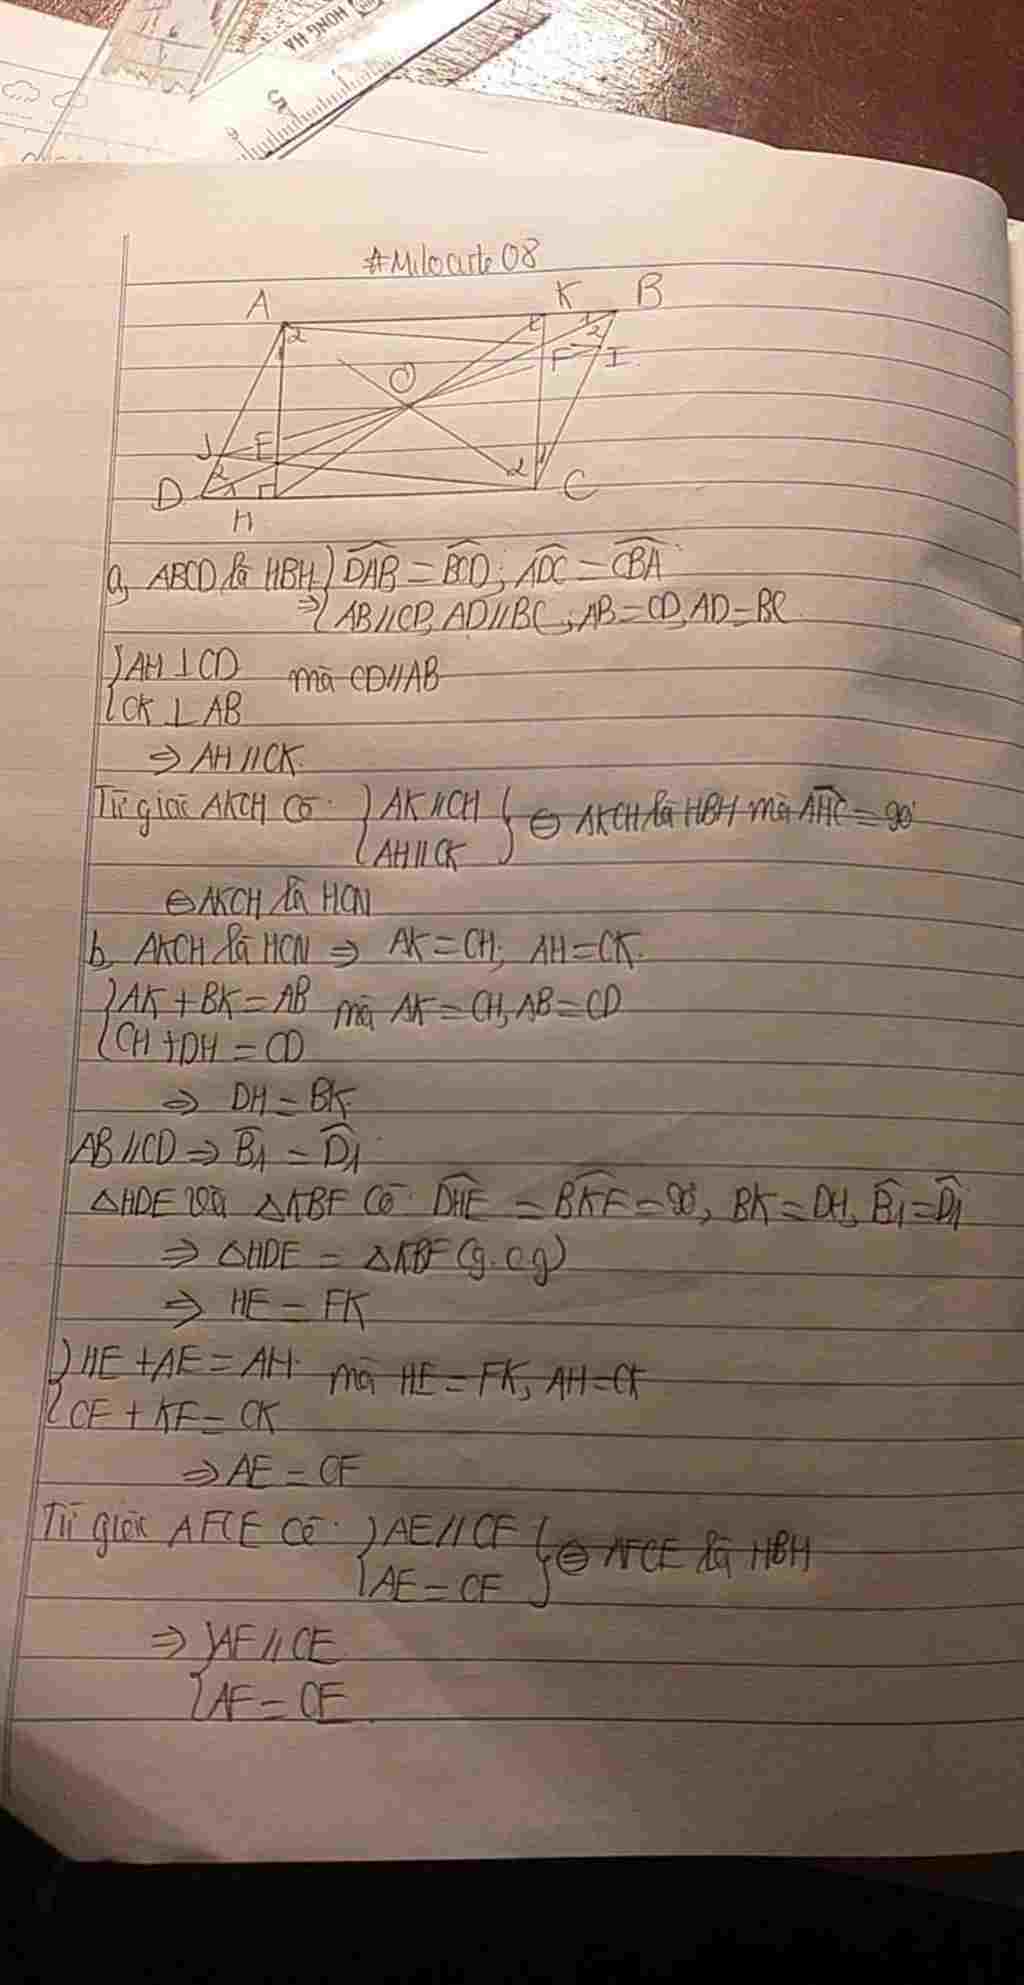 HONG HA
5
6
#Miloarte08
A K B
2 1 2
F I
O
J E
2 2 1
D C
H
a, ABCD là HBH } DAB = BCD ; ADC = CBA
⇒ { AB // CD, AD // BC ; AB = CD, AD = BC
{ AH ⊥ CD mà CD // AB
{ CK ⊥ AB
⇒ AH // CK
Tứ giác AKCH có { AK // CH } ⇒ AKCH là HBH mà AHC = 90°
{ AH // CK }
⇒ AKCH là HCN
b, AKCH là HCN ⇒ AK = CH ; AH = CK.
{ AK + BK = AB mà AK = CH, AB = CD
{ CH + DH = CD
⇒ DH = BK
AB // CD ⇒ B1 = D1
△HDE và △KBF có DHE = BKF = 90°, BK = DH, B1 = D1
⇒ △HDE = △KBF (g.c.g)
⇒ HE = FK
{ HE + AE = AH mà HE = FK, AH = CK
{ CF + KF = CK
⇒ AE = CF
Tứ giác AFCE có { AE // CF } ⇒ AFCE là HBH
{ AE = CF }
⇒ { AF // CE
{ AF = CE